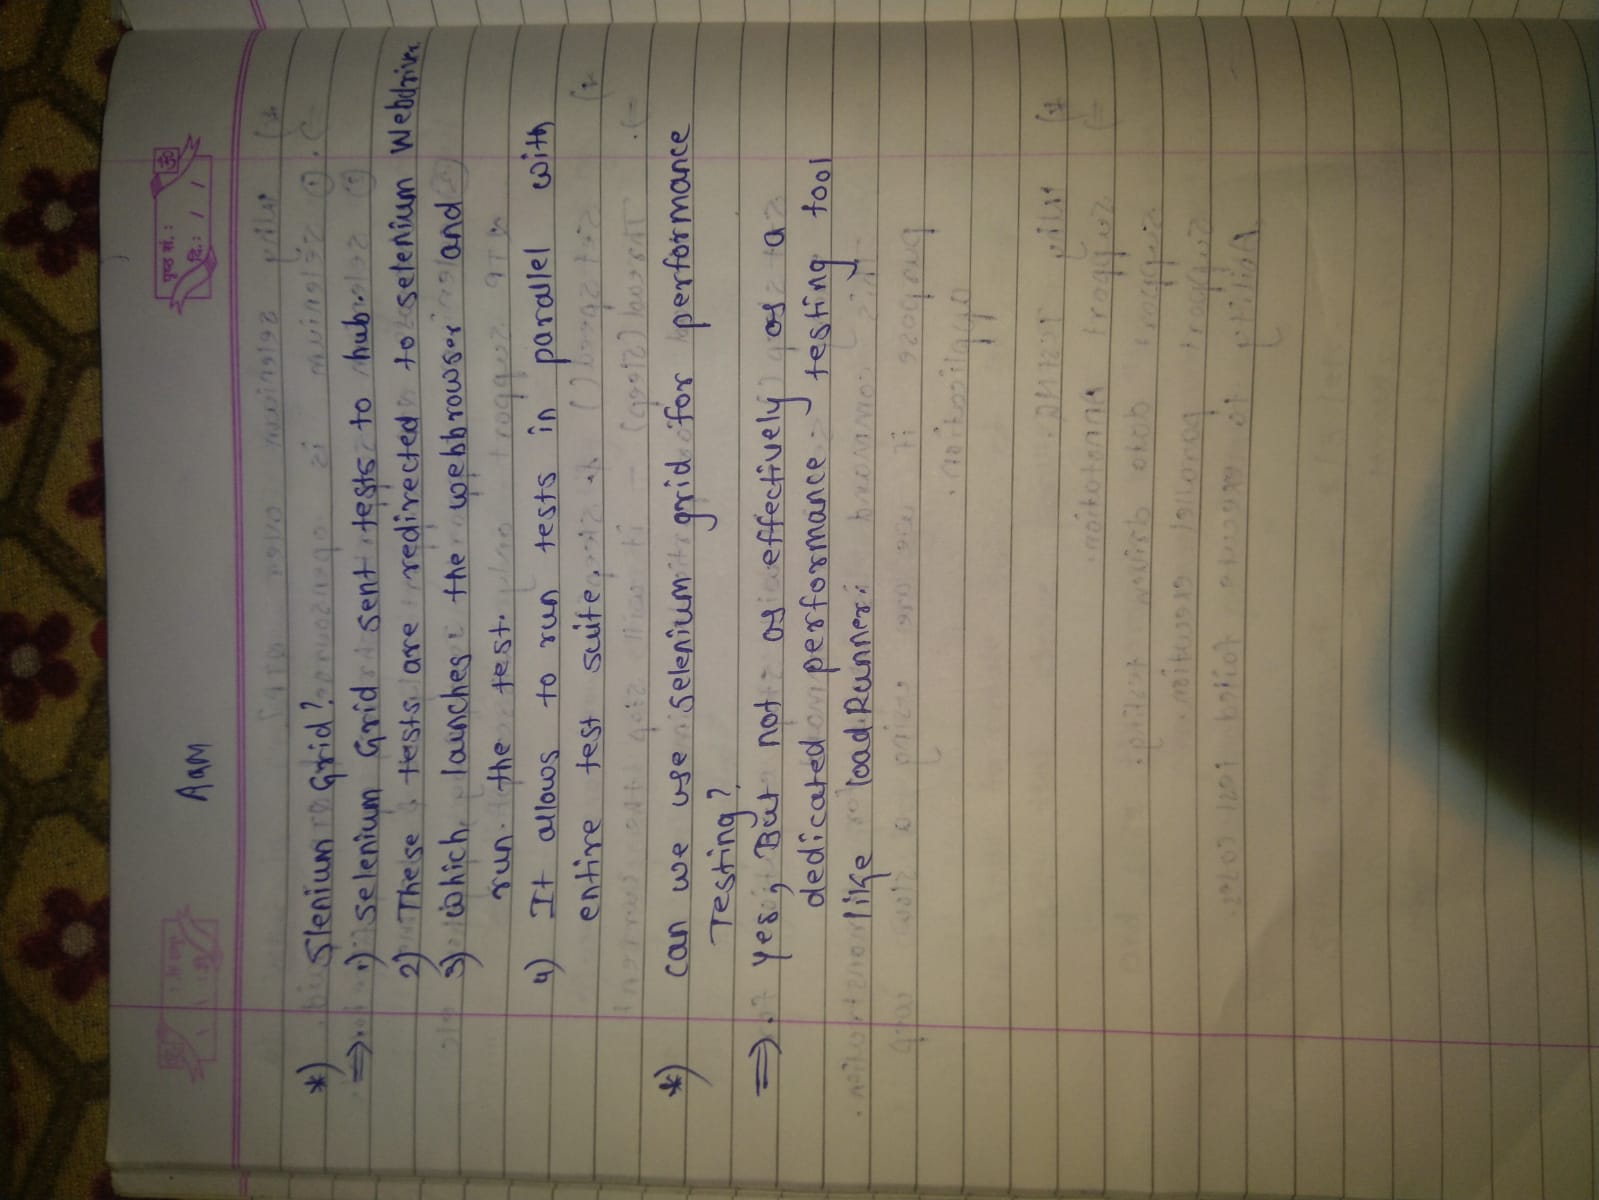 AQM
पृष्ठ सं. :
दि. : / /
*) Slenium Grid?
⇒. 1) Selenium Grid sent tests to hub.
2) These tests are redirected to selenium Webdriver
3) which launches the webbrowser and
run the test.
4) It allows to run tests in parallel with
entire test suite.
*) can we use selenium grid for performance
Testing?
⇒. Yes, But not as effectively as a
dedicated performance testing tool
like load Runner.